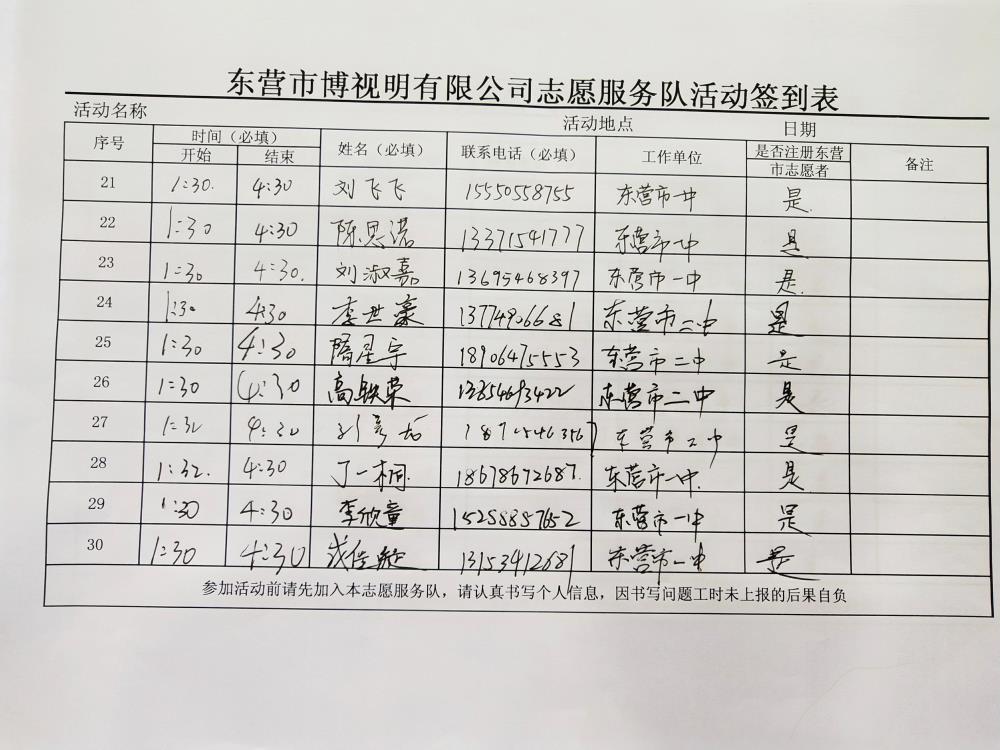 东营市博视明有限公司志愿服务队活动签到表
活动名称 活动地点 日期
序号 时间（必填） 姓名（必填） 联系电话（必填） 工作单位 是否注册东营市志愿者 备注
开始 结束
21 1:30. 4:30 刘飞飞 15550558755 东营市一中 是.
22 1:30 4:30 陈思诺 13371541777 东营市一中 是
23 1:30 4:30. 刘淑嘉 13695468397 东营市一中 是.
24 1:30 4:30 李世豪 13774906681 东营市二中 是
25 1:30 4:30 隋星宇 18906475553 东营市二中 是
26 1:30 4:30 高轶荣 东营市二中 是
27 东营市二中 是
28 1:32. 4:30 丁一桐 18678672687. 东营市一中. 是
29 1:30 4:30 李欣童 东营市一中 是
30 1:30 4:30 13153412681 东营市一中 是
参加活动前请先加入本志愿服务队，请认真书写个人信息，因书写问题工时未上报的后果自负